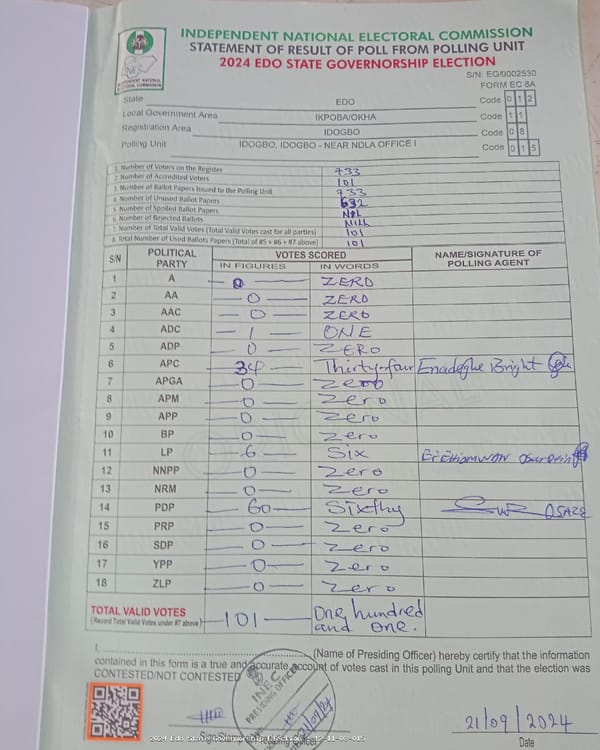 INDEPENDENT NATIONAL ELECTORAL COMMISSION
STATEMENT OF RESULT OF POLL FROM POLLING UNIT
2024 EDO STATE GOVERNORSHIP ELECTION
S/N: EG/0002530
FORM EC 8A
State EDO Code 0 1 2
Local Government Area IKPOBA/OKHA Code 1 1
Registration Area IDOGBO Code 0 8
Polling Unit IDOGBO, IDOGBO - NEAR NDLA OFFICE I Code 0 1 5
1. Number of Voters on the Register 733
2. Number of Accredited Voters 101
3. Number of Ballot Papers Issued to the Polling Unit 733
4. Number of Unused Ballot Papers 632
5. Number of Spoiled Ballot Papers NIL
6. Number of Rejected Ballots NILL
7. Number of Total Valid Votes (Total Valid Votes cast for all parties) 101
8. Total Number of Used Ballots Papers (Total of #5 + #6 + #7 above) 101
S/N POLITICAL PARTY VOTES SCORED NAME/SIGNATURE OF POLLING AGENT
IN FIGURES IN WORDS
1 A 0 ZERO
2 AA 0 ZERO
3 AAC 0 ZERO
4 ADC 1 ONE
5 ADP 0 ZERO
6 APC 34 Thirty-four Enadeghe Bright
7 APGA 0 Zero
8 APM 0 Zero
9 APP 0 Zero
10 BP 0 Zero
11 LP 6 Six
12 NNPP 0 Zero
13 NRM 0 Zero
14 PDP 60 Sixthy OSAZE
15 PRP 0 Zero
16 SDP 0 Zero
17 YPP 0 Zero
18 ZLP 0 Zero
TOTAL VALID VOTES 101 One hundred and one.
(Record Total Valid Votes under #7 above)
I, (Name of Presiding Officer) hereby certify that the information
contained in this form is a true and accurate account of votes cast in this polling Unit and that the election was
CONTESTED/NOT CONTESTED
INEC
PRESIDING OFFICER
21/09/2024
Date